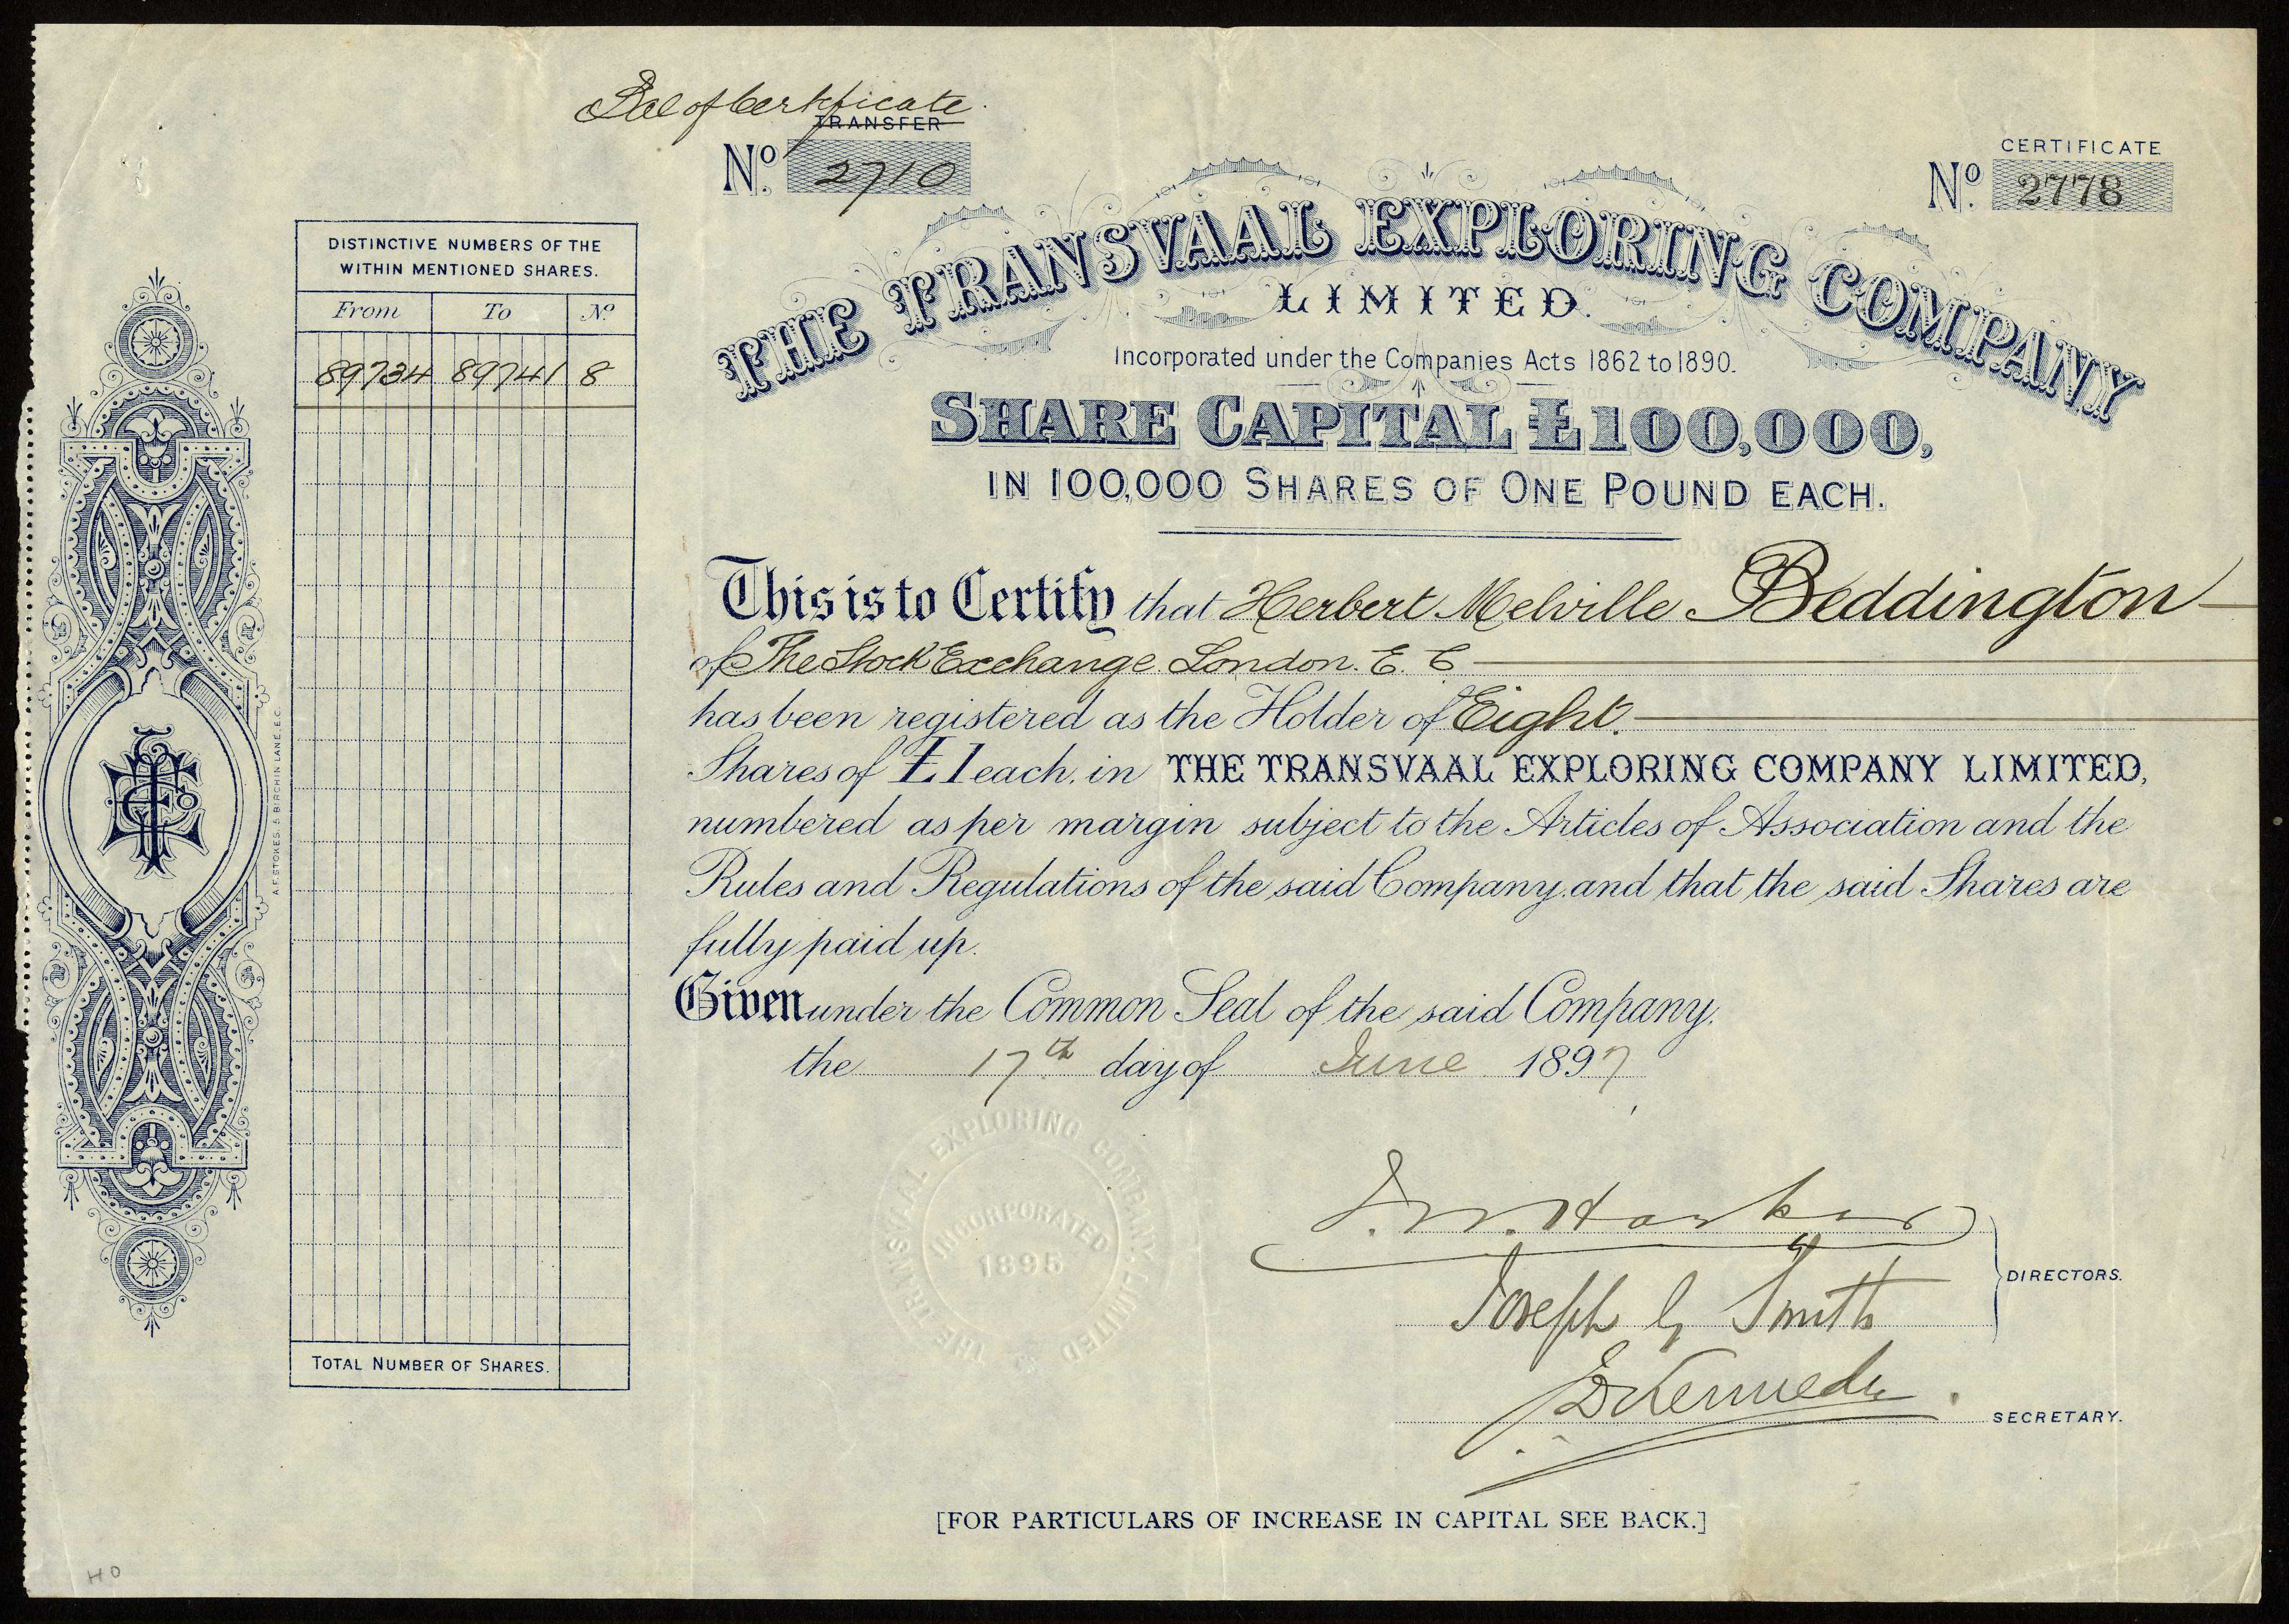 Bal of Certificate.
TRANSFER
No. 2710
CERTIFICATE
No. 2778
THE TRANSVAAL EXPLORING COMPANY
LIMITED.
Incorporated under the Companies Acts 1862 to 1890.
SHARE CAPITAL £100,000,
IN 100,000 SHARES OF ONE POUND EACH.
DISTINCTIVE NUMBERS OF THE
WITHIN MENTIONED SHARES.
From To No.
89734 89741 8
TOTAL NUMBER OF SHARES.
A.F. STOKES, 5 BIRCHIN LANE, E.C.
This is to Certify that Herbert Melville Beddington
of The Stock Exchange London. E. C
has been registered as the Holder of Eight.
Shares of £1 each, in THE TRANSVAAL EXPLORING COMPANY LIMITED,
numbered as per margin subject to the Articles of Association and the
Rules and Regulations of the said Company, and that the said Shares are
fully paid up.
Given under the Common Seal of the said Company.
the 17th day of June 1897
THE TRANSVAAL EXPLORING COMPANY, LIMITED
INCORPORATED
1895
DIRECTORS.
Joseph G Smith
Kennedy
SECRETARY.
[FOR PARTICULARS OF INCREASE IN CAPITAL SEE BACK.]
HO